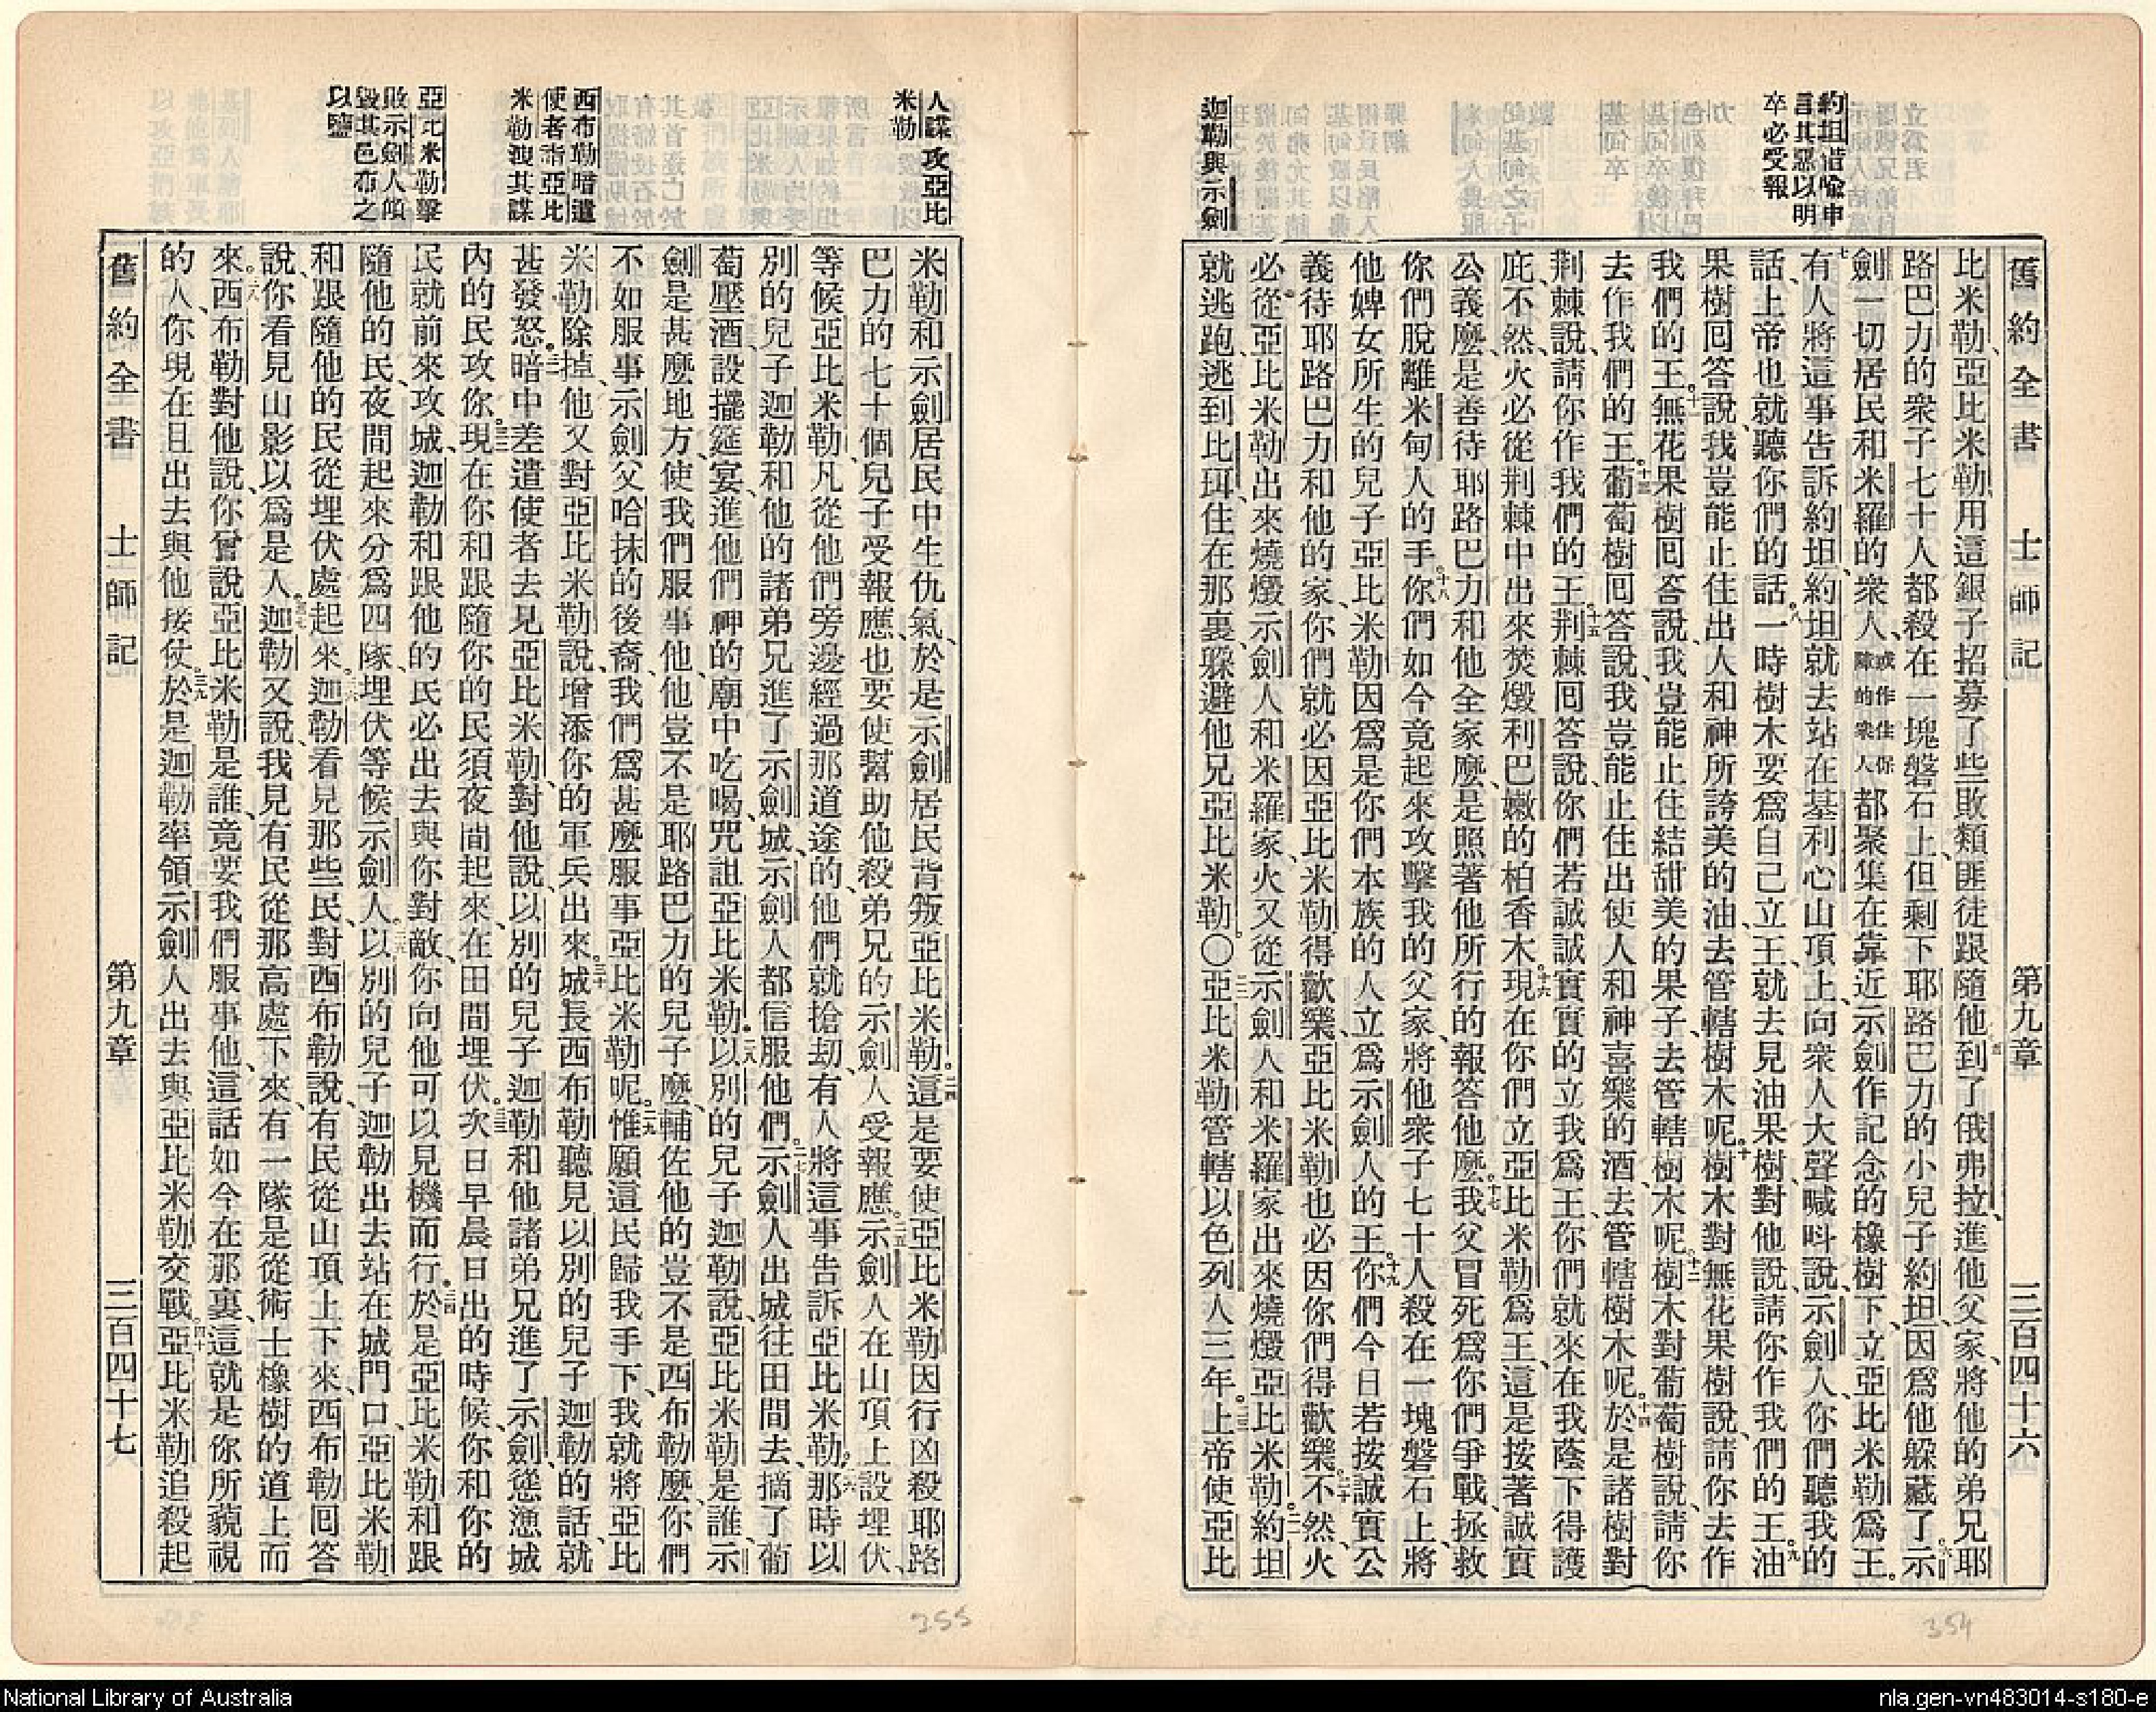 舊約全書 士師記 第九章 三百四十六
約坦譛喻申
言其惡以明
卒必受報
迦勒與示劍
比米勒、亞比米勒用這銀子招募了些敗類匪徒跟隨他、到了俄弗拉、進他父家、將他的弟兄耶
路巴力的衆子七十人都殺在一塊磐石上、但剩下耶路巴力的小兒子約坦、因爲他躱藏了。示
劍一切居民和米羅的衆人、或作住保障的衆人都聚集在靠近示劍作記念的橡樹下、立亞比米勒爲王。
七有人將這事告訴約坦、約坦就去站在基利心山頂上、向衆人大聲喊呌說、示劍人、你們聽我的
話、上帝也就聽你們的話。八一時樹木要爲自己立王、就去見油果樹、對他說、請你作我們的王。九油
果樹回答說、我豈能止住出人和神所誇美的油、去管轄樹木呢。十樹木對無花果樹說、請你去作
我們的王。十一無花果樹回答說、我豈能止住結甜美的果子、去管轄樹木呢。十二樹木對葡萄樹說、請你
去作我們的王。十三葡萄樹回答說、我豈能止住出使人和神喜樂的酒、去管轄樹木呢。十四於是諸樹對
荆棘說、請你作我們的王。十五荆棘回答說、你們若誠誠實實的立我爲王、你們就來在我蔭下得護
庇、不然、火必從荆棘中出來、焚燬利巴嫩的柏香木。十六現在你們立亞比米勒爲王、這是按著誠實
公義麼、是善待耶路巴力和他全家麼、是照著他所行的報答他麼。十七我父冒死爲你們爭戰、拯救
你們脫離米甸人的手。十八你們如今竟起來攻擊我的父家、將他衆子七十人殺在一塊磐石上、將
他婢女所生的兒子亞比米勒、因爲是你們本族的人、立爲示劍人的王。十九你們今日若按誠實公
義待耶路巴力和他的家、你們就必因亞比米勒得歡樂、亞比米勒也必因你們得歡樂。二十不然、火
必從亞比米勒出來、燒燬示劍人和米羅家、火又從示劍人和米羅家出來、燒燬亞比米勒。二一約坦
就逃跑、逃到比珥、住在那裏、躱避他兄亞比米勒。〇二二亞比米勒管轄以色列人三年。二三上帝使亞比
人謀攻亞比
米勒
西布勒暗遣
使者詣亞比
米勒洩其謀
亞比米勒擊
敗示劍人傾
毀其邑布之
以鹽
米勒和示劍居民中生仇氣、於是示劍居民背叛亞比米勒。二四這是要使亞比米勒因行凶殺耶路
巴力的七十個兒子受報應、也要使幫助他殺弟兄的示劍人受報應。二五示劍人在山頂上設埋伏、
等候亞比米勒、凡從他們旁邊經過那道途的、他們就搶刧、有人將這事告訴亞比米勒。二六那時以
別的兒子迦勒和他的諸弟兄進了示劍城、示劍人都信服他們。二七示劍人出城往田間去、摘了葡
萄壓酒、設擺筵宴、進他們神的廟中吃喝、咒詛亞比米勒。二八以別的兒子迦勒說、亞比米勒是誰、示
劍是甚麼地方、使我們服事他、他豈不是耶路巴力的兒子麼、輔佐他的豈不是西布勒麼、你們
不如服事示劍父哈抹的後裔、我們爲甚麼服事亞比米勒呢。二九惟願這民歸我手下、我就將亞比
米勒除掉、他又對亞比米勒說、增添你的軍兵出來。三十城長西布勒聽見以別的兒子迦勒的話、就
甚發怒。三一暗中差遣使者去見亞比米勒、對他說、以別的兒子迦勒和他諸弟兄進了示劍、慫恿城
內的民攻你。三二現在你和跟隨你的民須夜間起來、在田間埋伏。三三次日早晨日出的時候、你和你的
民就前來攻城、迦勒和跟他的民必出去與你對敵、你向他可以見機而行。三四於是亞比米勒和跟
隨他的民、夜間起來、分爲四隊、埋伏等候示劍人。三五以別的兒子迦勒出去站在城門口、亞比米勒
和跟隨他的民從埋伏處起來。三六迦勒看見那些民、對西布勒說、有民從山頂上下來、西布勒回答
說、你看見山影以爲是人。三七迦勒又說、我見有民從那高處下來、有一隊是從術士橡樹的道上而
來。三八西布勒對他說、你曾說亞比米勒是誰、竟要我們服事他、這話如今在那裏、這就是你所藐視
的人、你現在且出去與他接仗。三九於是迦勒率領示劍人出去、與亞比米勒交戰。四十亞比米勒追殺起
舊約全書 士師記 第九章 三百四十七
354
355
National Library of Australia
nla.gen-vn483014-s180-e